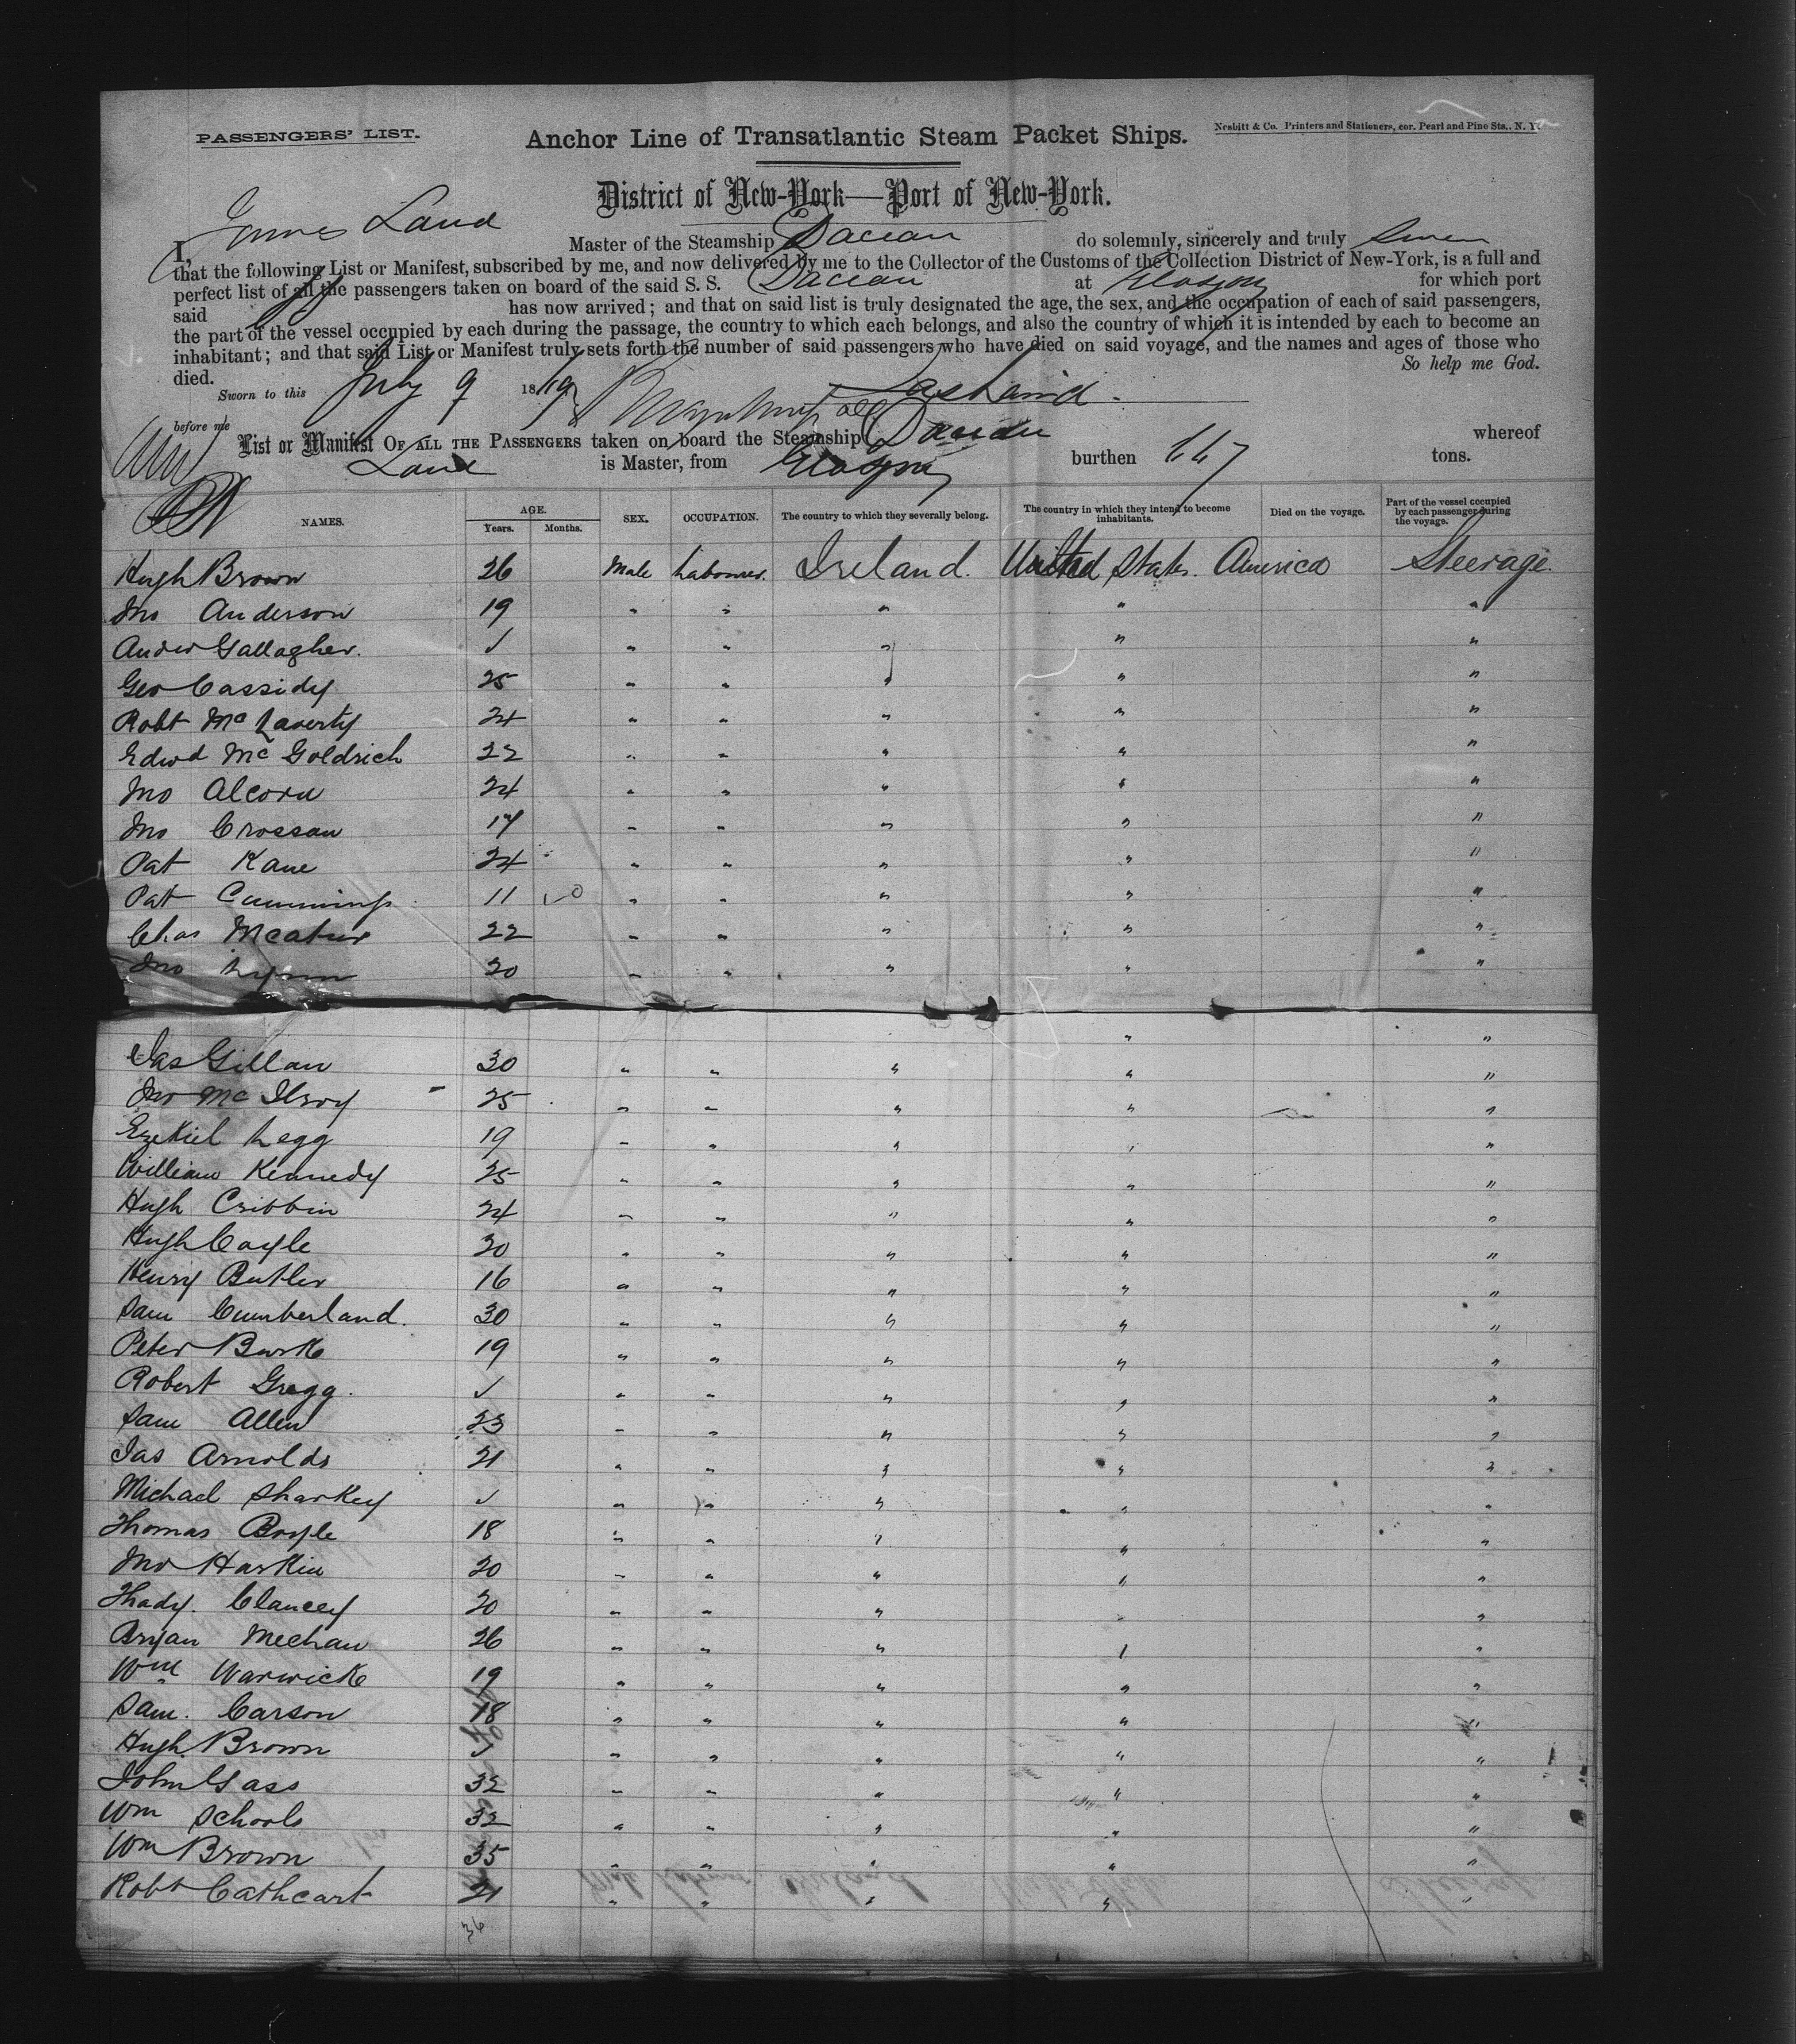 PASSENGERS' LIST.
Anchor Line of Transatlantic Steam Packet Ships.
Nesbitt & Co. Printers and Stationers, cor. Pearl and Pine Sts., N. Y.
District of New-York—Port of New-York.
I, James Laird Master of the Steamship Dacian do solemnly, sincerely and truly Swear
that the following List or Manifest, subscribed by me, and now delivered by me to the Collector of the Customs of the Collection District of New-York, is a full and
perfect list of all the passengers taken on board of the said S. S. Dacian at Glasgow for which port
said has now arrived; and that on said list is truly designated the age, the sex, and the occupation of each of said passengers,
the part of the vessel occupied by each during the passage, the country to which each belongs, and also the country of which it is intended by each to become an
inhabitant; and that said List or Manifest truly sets forth the number of said passengers who have died on said voyage, and the names and ages of those who
died. So help me God.
Sworn to this July 9 18 Jas Laird
before me
List or Manifest OF ALL THE PASSENGERS taken on board the Steamship Dacian whereof
Laird is Master, from Glasgow burthen 667 tons.
NAMES. AGE. Years. Months. SEX. OCCUPATION. The country to which they severally belong. The country in which they intend to become inhabitants. Died on the voyage. Part of the vessel occupied by each passenger during the voyage.
Hugh Brown 26 Male Labourer. Ireland. United States. America Steerage.
Jno Anderson 19 " " " " "
Andw Gallagher. ✓ " " " " "
Geo Cassidy 25 " " " " "
Robt Mc Laverty 24 " " " " "
Edwd Mc Goldrich 22 " " " " "
Jno Alcorn 24 " " " " "
Jno Crossan 17 " " " " "
Pat Kane 24 " " " " "
Pat Cummings 11 " " " " "
Chas 22 " " " " "
Jno Lynn 20 " " " " "
" "
Jas Gillan 30 " " " " "
Jno Mc Ilroy 25 " " " " "
Ezekiel Legg 19 " " " " "
William Kennedy 25 " " " " "
Hugh Cribbin 24 " " " " "
Hugh Coyle 20 " " " " "
Henry Butler 16 " " " " "
Sam Cumberland. 30 " " " " "
Peter Burke 19 " " " " "
Robert Gregg. ✓ " " " " "
Sam Allen 23 " " " " "
Jas Arnolds 21 " " " " "
Michael Sharkey ✓ " " " " "
Thomas Boyle 18 " " " " "
Jno Harkin 20 " " " " "
Thady. Clancey 20 " " " " "
Bryan Meehan 26 " " " " "
Wm Warwick 19 " " " " "
Sam. Carson 18 " " " " "
Hugh Brown ✓ " " " " "
John Gass 32 " " " " "
Wm Schools 32 " " " " "
Wm Brown 35 " " " " "
Robt Cathcart 21 " " " " "
36